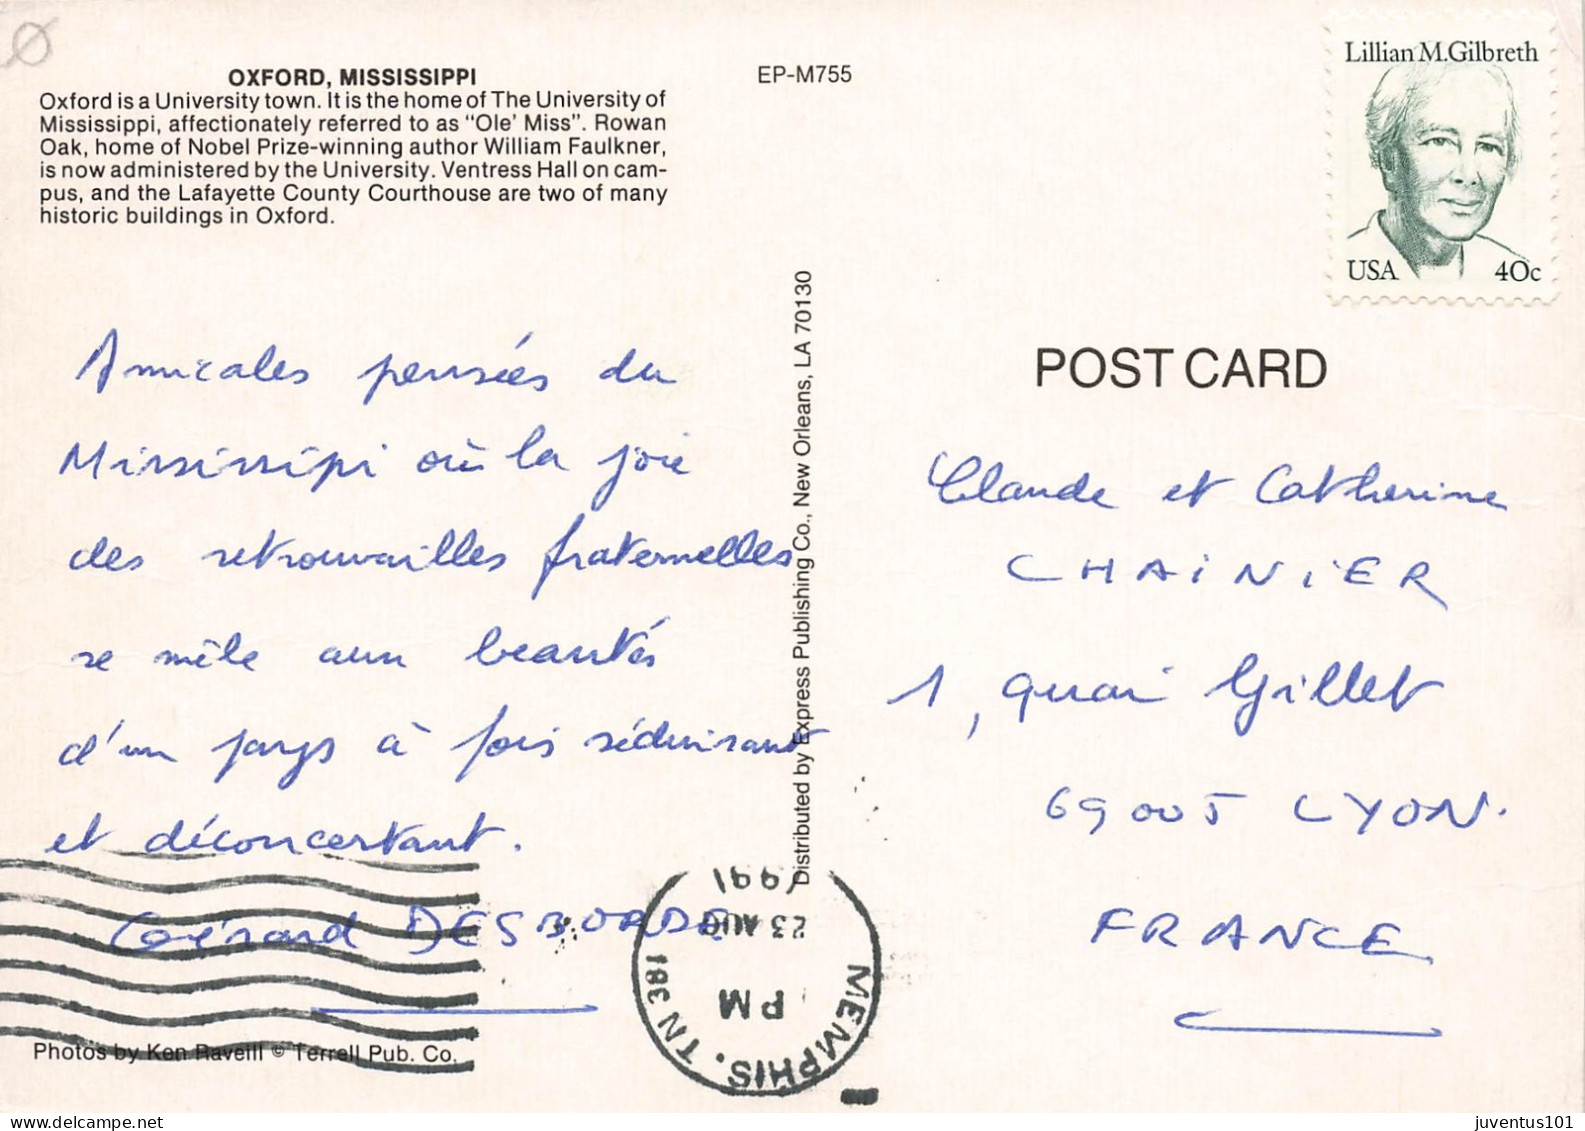 OXFORD, MISSISSIPPI
Oxford is a University town. It is the home of The University of
Mississippi, affectionately referred to as "Ole' Miss". Rowan
Oak, home of Nobel Prize-winning author William Faulkner,
is now administered by the University. Ventress Hall on cam-
pus, and the Lafayette County Courthouse are two of many
historic buildings in Oxford.
EP-M755
Lillian M. Gilbreth
USA 40c
POST CARD
Amicales pensées du
Mississipi où la joie
des retrouvailles fraternelles
se mêle aux beautés
d'un pays à fois séduisant
et déconcertant.
Gérard DESBORDE
Distributed by Express Publishing Co., New Orleans, LA 70130
Claude et Catherine
CHAINIER
1, quai Gillet
69005 LYON.
FRANCE
MEMPHIS. TN 381
PM
23 AUG
1991
Photos by Ken Raveill © Terrell Pub. Co.
juventus101